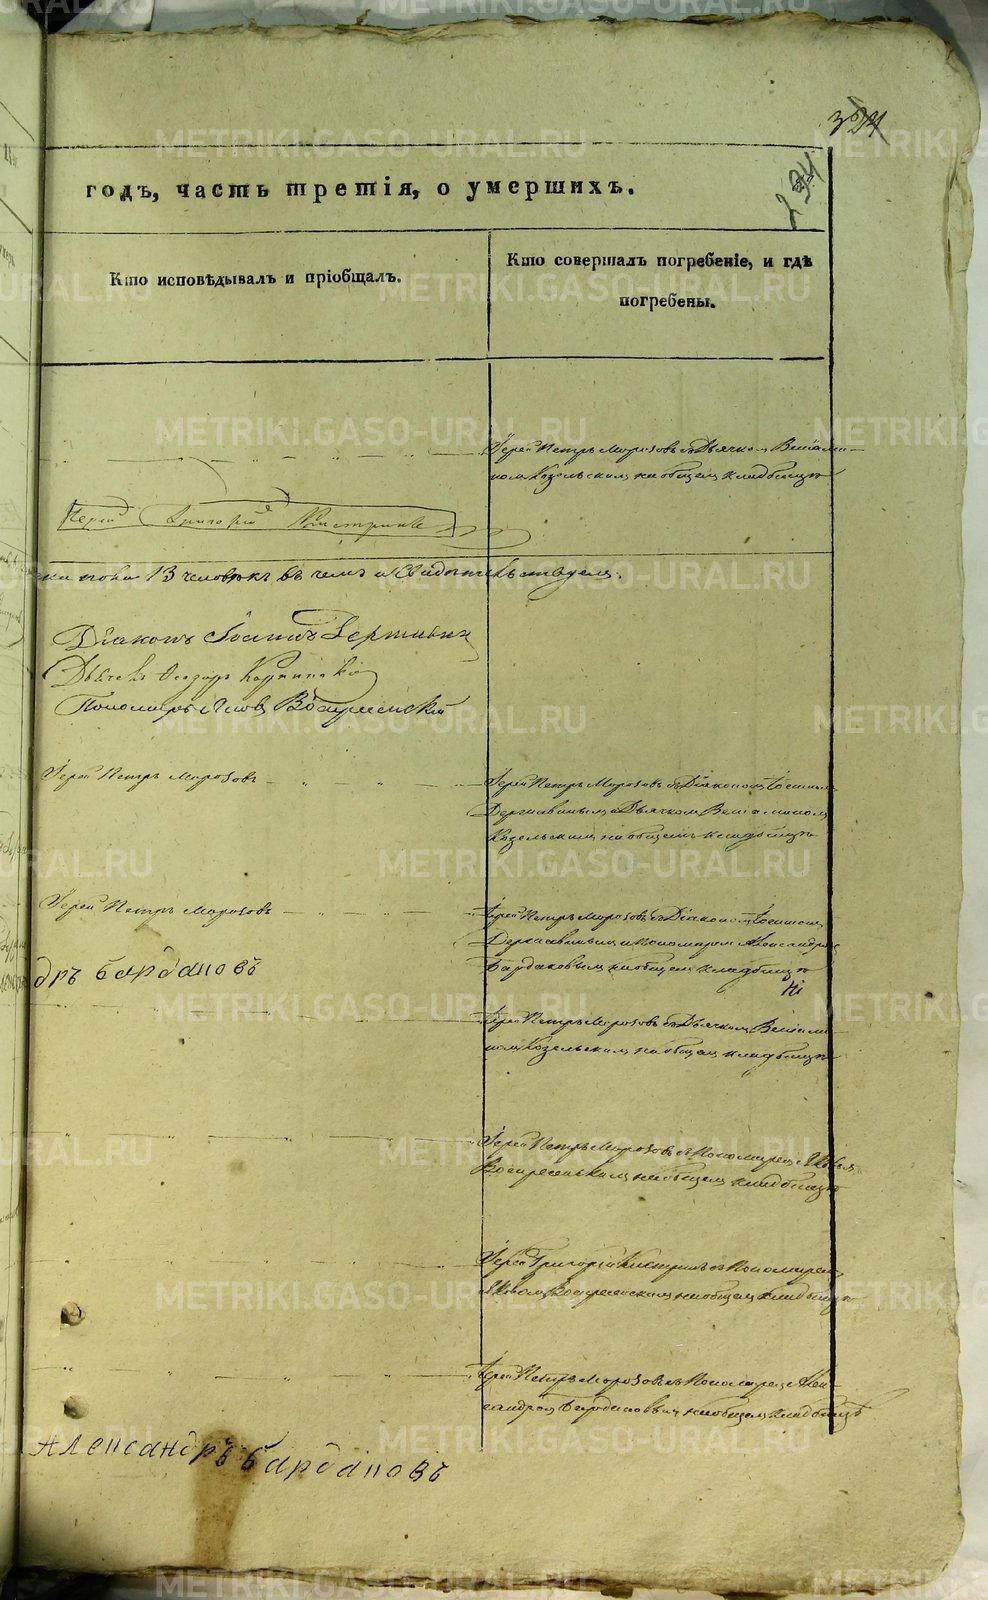 METRIKI.GASO-URAL.RU
234
годъ, часть третія, о умершихъ.
Кто исповѣдывалъ и пріобщалъ.
Кто совершалъ погребеніе, и гдѣ
погребены.
Іерей Петръ Морозовъ съ Дьячкомъ Веніами-
номъ Козельскимъ на общемъ кладбищѣ
Іерей Григорій
13 человѣкъ въ чемъ и свидѣтельствуемъ.
Діаконъ Іоаннъ Державинъ
Дьячекъ Ѳеодоръ
Пономарь Іаковъ Воскресенскій
Іерей Петръ Морозовъ
Іерей Петръ Морозовъ съ Діакономъ Іоанномъ
Державинымъ и Дьячкомъ Веніаминомъ
Козельскимъ на общемъ кладбищѣ
Іерей Петръ Морозовъ
Іерей Петръ Морозовъ съ Діакономъ Іоанномъ
Державинымъ и Пономаремъ Александромъ
Бардаковымъ на общемъ кладбищѣ
дръ Бардаковъ
Іерей Петръ Морозовъ съ Дьячкомъ Веніами-
номъ Козельскимъ на общемъ кладбищѣ
Іерей Петръ Морозовъ съ Пономаремъ Яковомъ
Воскресенскимъ на общемъ кладбищѣ
Іерей Григорій съ Пономаремъ
Яковомъ Воскресенскимъ на общемъ кладбищѣ
Іерей Петръ Морозовъ съ Пономаремъ Алек-
сандромъ Бардаковымъ на общемъ кладбищѣ
Александръ Бардаковъ